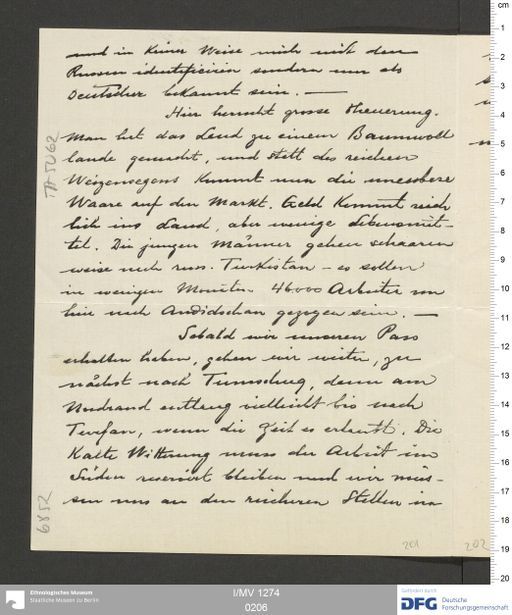 und in keiner Weise mich mit den
Russen identificiren sondern nur als
Deutscher bekannt sein. —
Hier herrscht grosse Theuerung.
Man hat das Land zu einem Baumwoll
lande gemacht, und statt des reichen
Weizensegens kommt nun die unessbare
Waare auf den Markt. Geld kommt reich
lich ins Land, aber wenige Lebensmit-
tel. Die jungen Männer gehen schaaren
weise nach russ. Turkistan – es sollen
in wenigen Monaten 46000 Arbeiter von
hier nach Andidschan gezogen sein. —
Sobald wir unseren Pass
erhalten haben, gehen wir weiter, zu
nächst nach Tumschuq, dann am
Nordrand entlang vielleicht bis nach
Turfan, wenn die Zeit es erlaubt. Die
Kalte Witterung muss der Arbeit im
Süden reservirt bleiben und wir müs-
sen uns an den reicheren Stellen im
TA 5062
6852
201
202
cm
1
2
3
4
5
6
7
8
9
10
11
12
13
14
15
16
17
18
19
20
Ethnologisches Museum
Staatliche Museen zu Berlin
I/MV 1274
0206
Gefördert durch
DFG Deutsche
Forschungsgemeinschaft